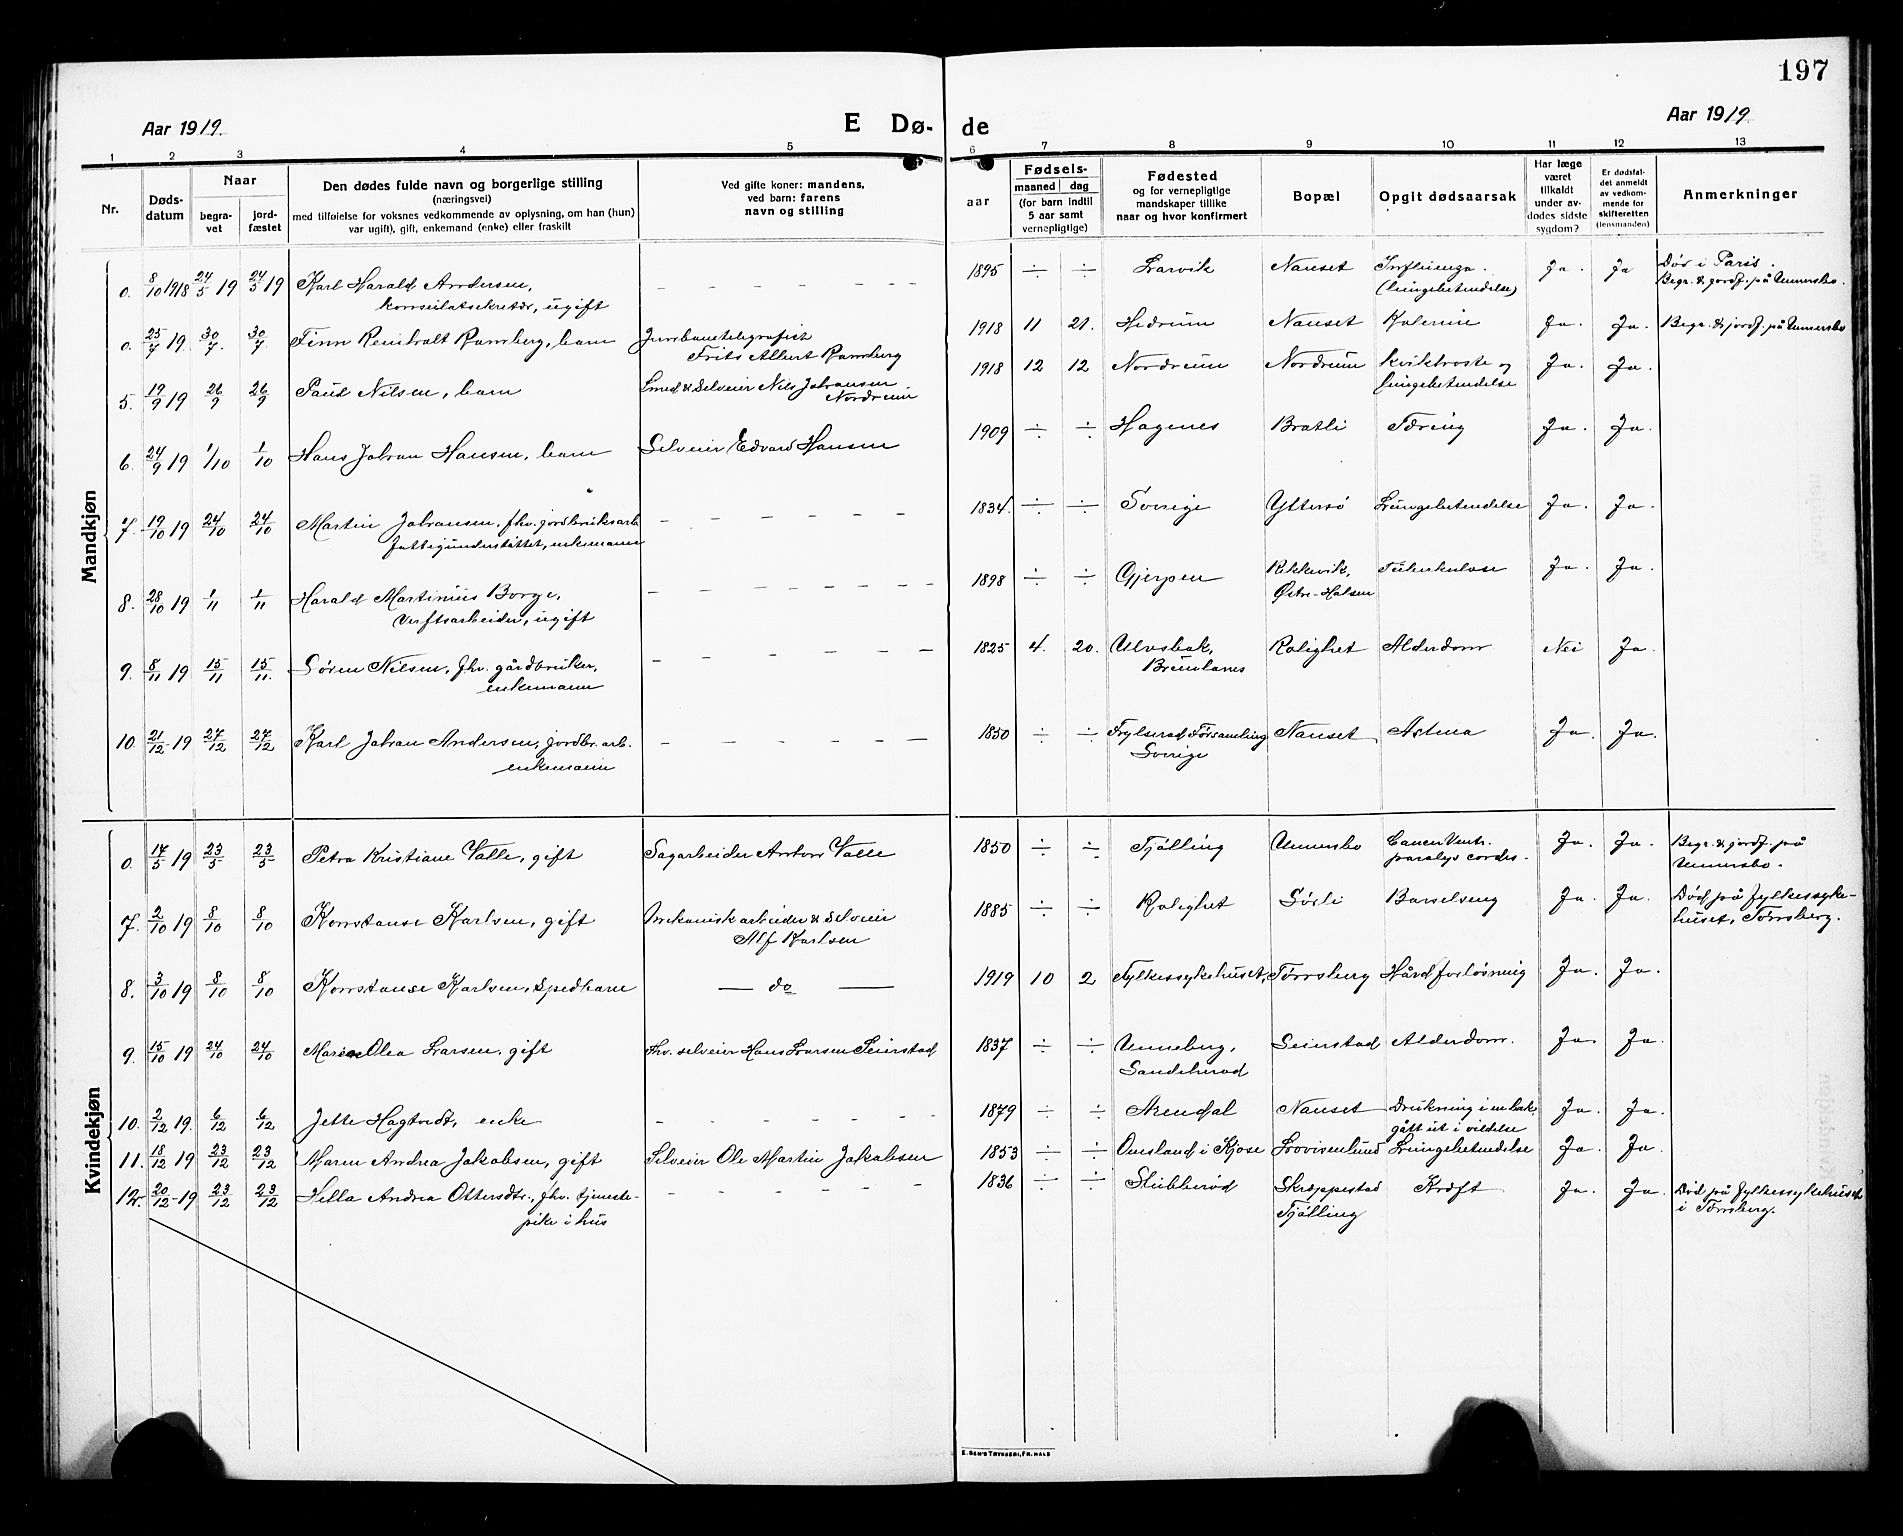 197
Aar 1919.
E Dø- de
Aar 1919
1 2 3 4 5 6 7 8 9 10 11 12 13
Nr.
Døds-
datum
Naar
begra-
vet
jord-
fæstet
Den dødes fulde navn og borgerlige stilling
(næringsvei)
med tilføielse for voksnes vedkommende av oplysning, om han (hun)
var ugift, gift, enkemand (enke) eller fraskilt
Ved gifte koner: mandens,
ved barn: farens
navn og stilling
aar
Fødsels-
maaned dag
(for barn indtil
5 aar samt
vernepligtige)
Fødested
og for vernepligtige
mandskaper tillike
naar og hvor konfirmert
Bopæl
Opgit dødsaarsak
Har læge
været
tilkaldt
under av-
dødes sidste
sygdom?
Er dødsfal-
det anmeldt
av vedkom-
mende for
skifteretten
(lensmanden)
Anmerkninger
Mandkjøn
0. 8/10 1918 24/5 19 24/5 19 Karl Harald Andersen, 1895 ÷ ÷ Larvik Nanset Influenza. Ja. Ja Dør i Paris.
konsulatsekretær, ugift (lungebetendelse) Begr. & jordf. på Unnersbo.
0. 25/7 19. 30/7. 30/7. Finn Reinholt Ramberg, barn Jernbanetelegrafist 1918 11 21. Hedrum Nanset Kolerine Ja. Ja. Begr. & jordf. på Unnersbo
Frits Albert Ramberg
5. 19/9 19 26/9 26/9 Paul Nilsen, barn Smed & Selveier Nils Johansen 1918 12 12 Nordrum Nordrum Kvikhoste og Ja. Ja.
Nordrum lungebetendelse
6. 24/9 19 1/10 1/10 Hans Johan Hansen, barn Selveier Edvard Hansen 1909 ÷ ÷ Hagenes Bratli Tæring Ja. Ja.
7. 19/10 19 24/10 24/10 Martin Johansen, fhv. jordbruksarb. 1834. ÷ ÷ Sverige Yttersø Lungebetendelse Ja. Ja.
fattigunderstøttet, enkemann
8. 28/10 19 1/11 1/11 Harald Martinius Borge, 1898 ÷ ÷ Gjerpen Rekkevik, Tuberkulose Ja. Ja.
verftsarbeider, ugift Østre-Halsen
9. 8/11 19 15/11 15/11. Søren Nilsen, fhv. gårdbruker, 1825 4. 20. Ulvsbak, Rolighet Alderdom Nei Ja.
enkemann Brunlanes
10. 21/12-19 27/12 27/12 Karl Johan Andersen, jordbr. arb. 1850 ÷ ÷ Frylserad Forsamling Nanset Astma Ja. Ja.
enkemann Sverige
Kvindekjøn
0. 17/5 19 23/5 23/5 Petra Kristiane Valle, gift Sagarbeider Anton Valle 1850 ÷ ÷ Tjølling Unnersbo Cancer Ventr. Ja. Ja. Begr. & jordf. på
paralys cordis. Unnersbo.
7. 2/10 19 8/10 8/10 Konstanse Karlsen, gift Mekanisk arbeider & selveier 1885 ÷ ÷ Rolighet Sørli Barselseng Ja. Ja. Død på Fylkessyke-
Alf Karlsen huset, Tønsberg.
8. 3/10 19 8/10 8/10 Konstanse Karlsen, spedbarn — do — 1919 10 2 Fylkessykehuset, Tønsberg Hård forløsning Ja. Ja.
9. 15/10 19 24/10 24/10 Maria Olea Larsen, gift Fhv. selveier Hans Larsen Seierstad 1837 ÷ ÷ Unneberg, Seierstad Alderdom. Ja. Ja.
Sandeherad
10. 2/12 19. 6/12 6/12 Jette Hagtvedt, enke 1879 ÷ ÷ Arendal Nanset Drukning i en bæk, Ja. Ja.
gått ut i vildelse
11. 18/12 19 23/12 23/12 Maren Andrea Jakobsen, gift Selveier Ole Martin Jakobsen 1853 ÷ ÷ Omsland i Kjose Lovisenlund Lungebetendelse Ja. Ja.
12. 20/12-19 23/12 23/12 Hella Andrea Ottersdtr., fhv. tjeneste- 1836 ÷ ÷ Stubberød Skrajppestad Kræft Ja. Ja. Død på Fylkessykehuset
pike i hus Tjølling i Tønsberg.
E. SEM'S TRYKKERI, FR.HALD